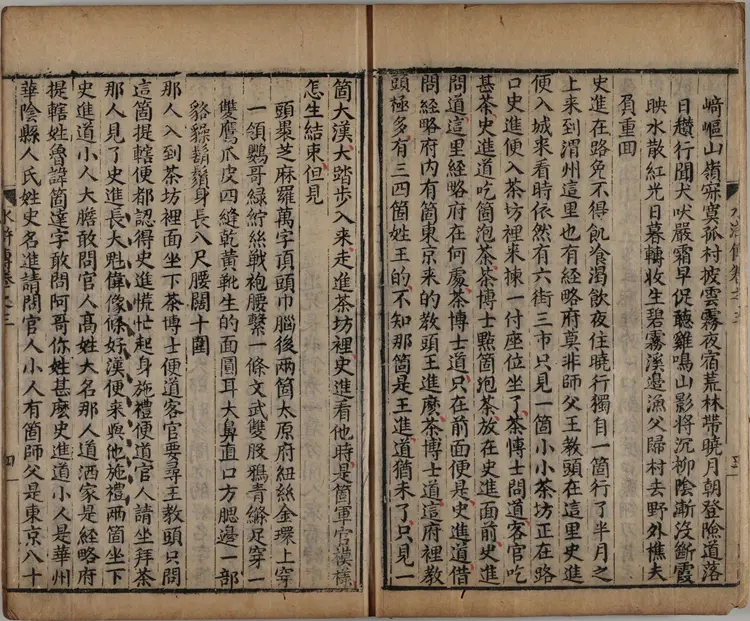 崎嶇山嶺寂寞孤村披雲霧夜宿荒林帶曉月朝登險道落
日趲行聞犬吠嚴霜早促聽雞鳴山影將沉柳陰漸沒斷霞
映水散紅光日暮轉收生碧霧溪邊漁父歸村去野外樵夫
負重回
史進在路免不得飢食渴飲夜住曉行獨自一箇行了半月之
上來到渭州這里也有經略府莫非師父王教頭在這里史進
便入城來看時依然有六街三市只見一箇小小茶坊正在路
口史進便入茶坊裡來揀一付座位坐了茶博士問道客官吃
甚茶史進道吃箇泡茶茶博士點箇泡茶放在史進面前史進
問道這里經略府在何處茶博士道只在前面便是史進道借
問經略府內有箇東京來的教頭王進麽茶博士道這府裡教
頭極多有三四箇姓王的不知那箇是王進道猶未了只見一
箇大漢大踏步入來走進茶坊裡史進看他時是箇軍官模樣
怎生結束但見
頭褁芝麻羅萬字頂頭巾腦後兩箇太原府紐絲金環上穿
一領鸚哥綠紵絲戰袍腰繫一條文武雙股鴉青絛足穿一
雙鷹爪皮四縫乾黃靴生的面圓耳大鼻直口方腮邊一部
貉鬍鬚身長八尺腰闊十圍
那人入到茶坊裡面坐下茶博士便道客官要尋王教頭只問
這箇提轄便都認得史進慌忙起身施禮便道官人請坐拜茶
那人見了史進長大魁偉像條好漢便來與他施禮兩箇坐下
史進道小人大膽敢問官人高姓大名那人道洒家是經略府
提轄姓魯諱箇達字敢問阿哥你姓甚麽史進道小人是華州
華陰縣人氏姓史名進請問官人小人有箇師父是東京八十
水滸傳卷之三
四